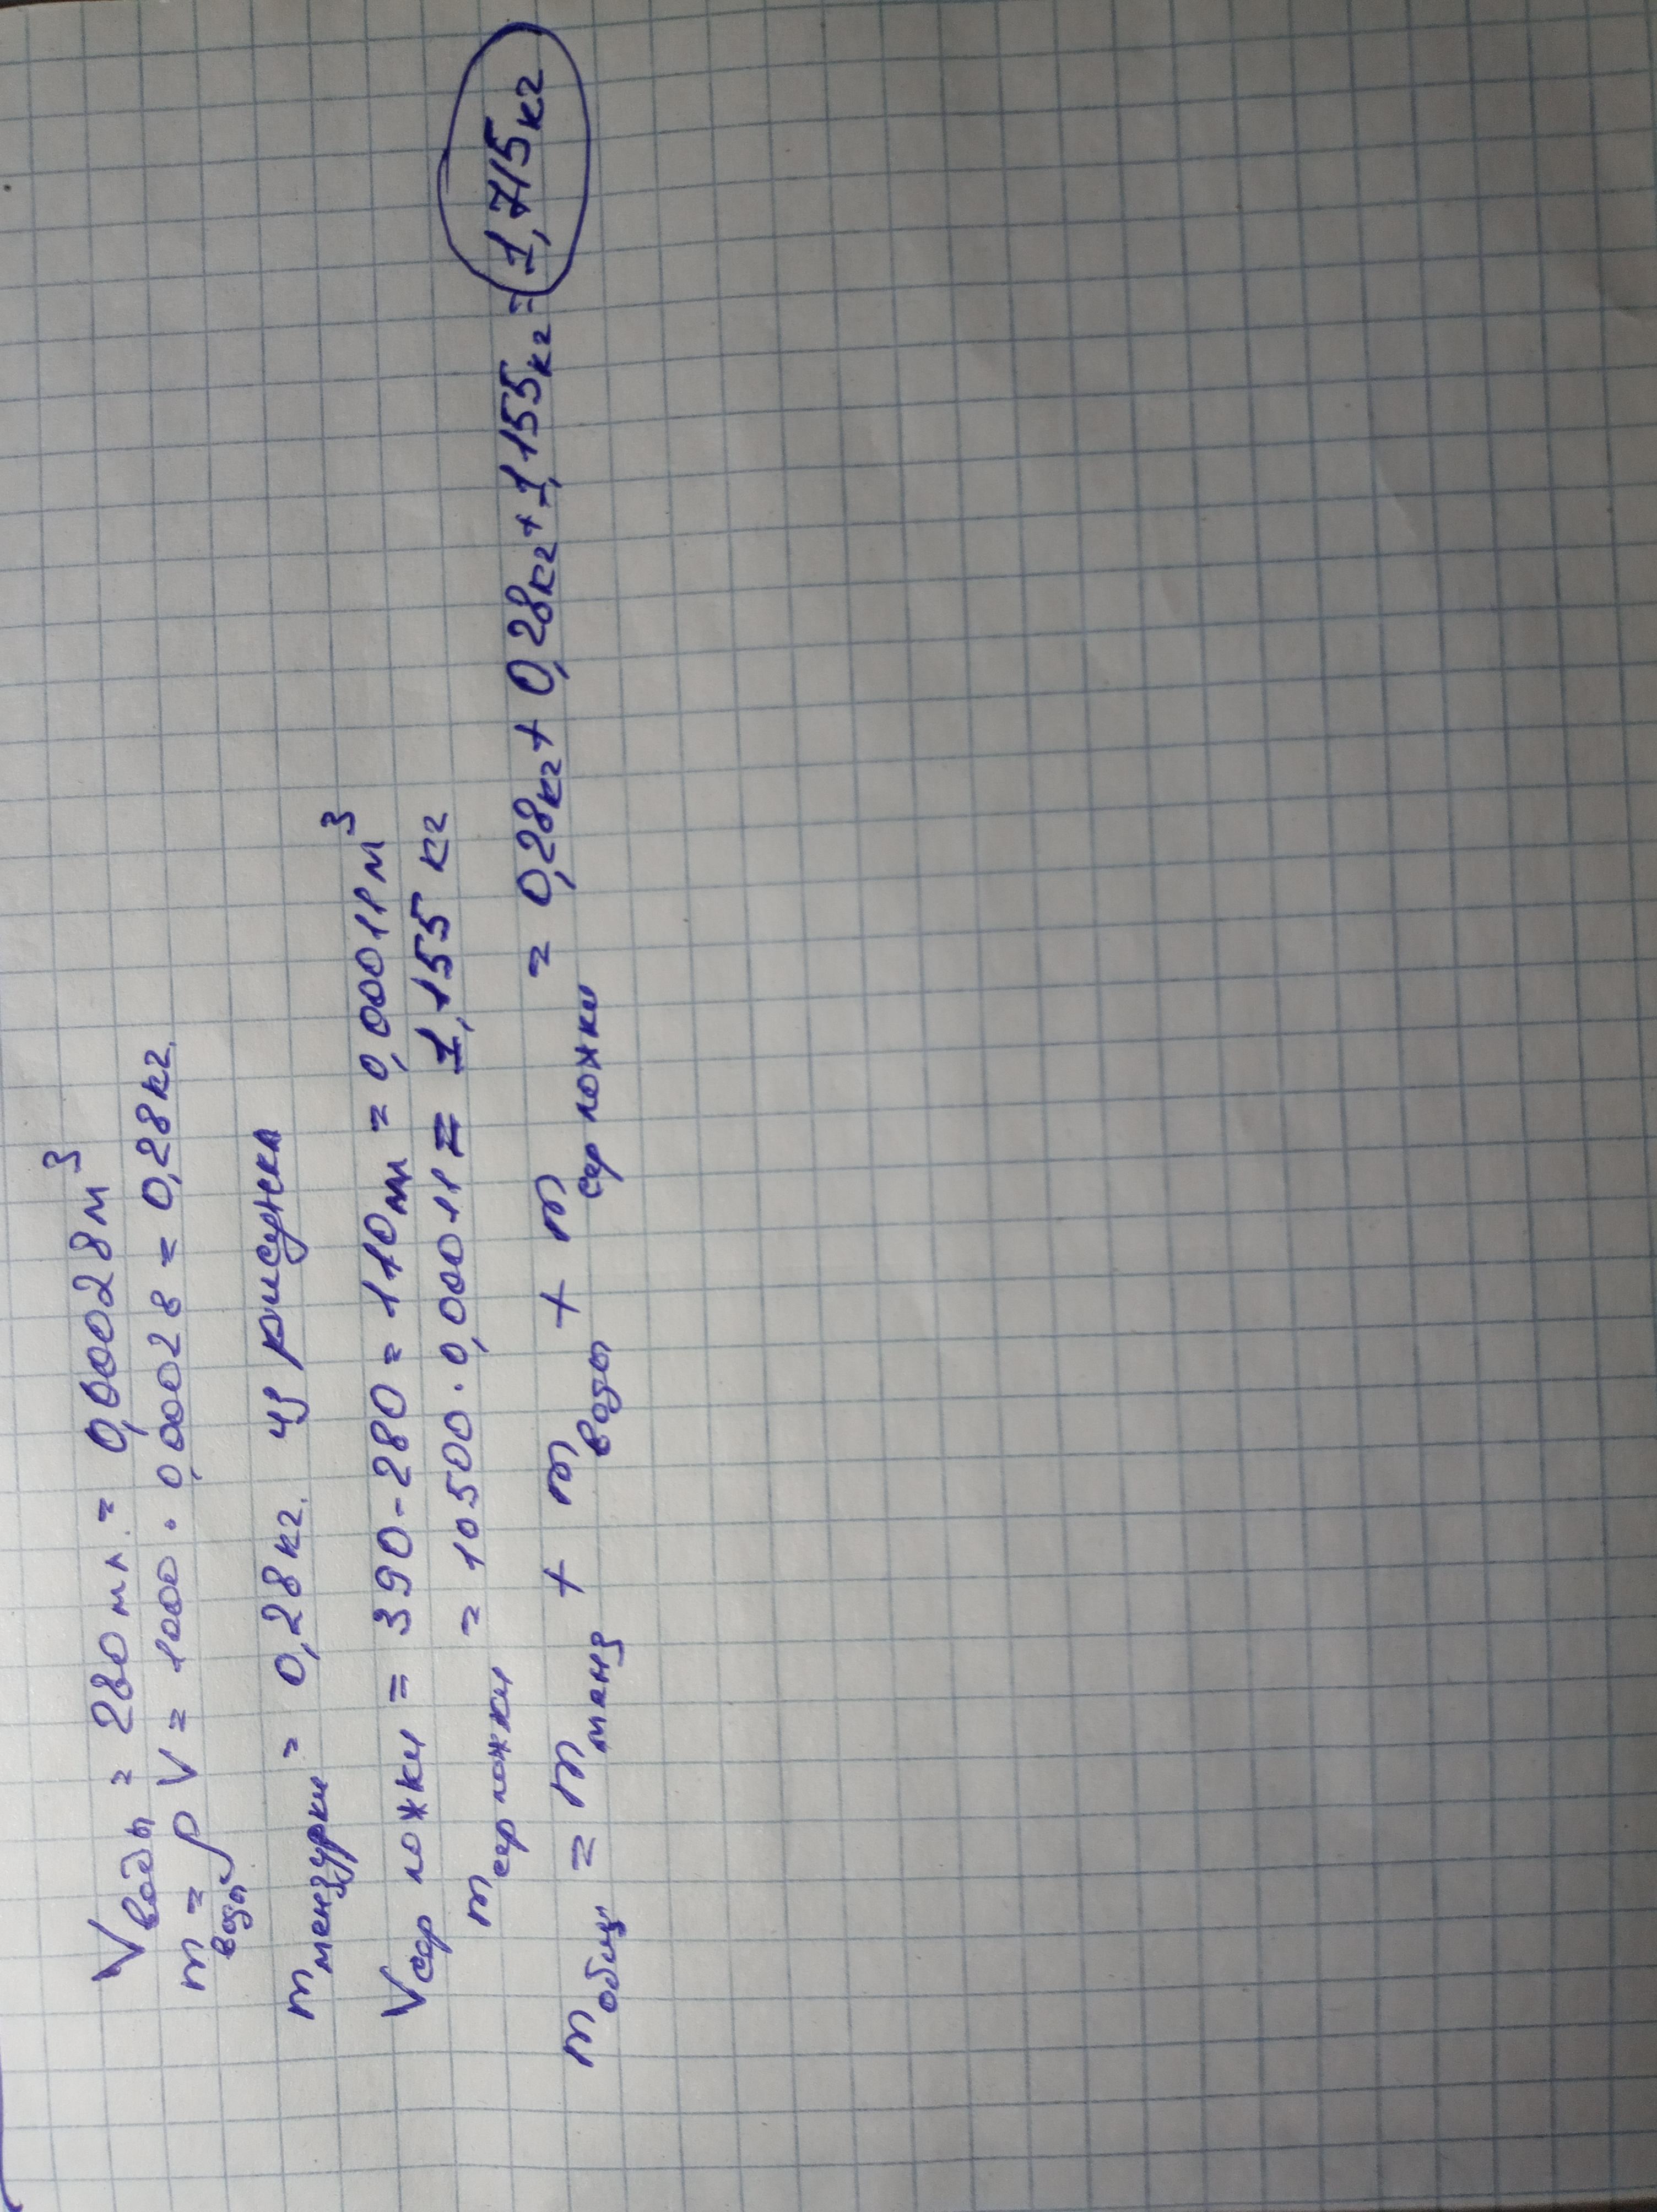 V воды = 280 мл = 0,00028 м³
m воды = ρ V = 1000 · 0,00028 = 0,28 кг.
m мензурки = 0,28 кг. из рисунка
V сер ложки = 390 - 280 = 110 мл = 0,00011 м³
m сер ложки = 10500 · 0,00011 = 1,155 кг
m общ = m менз + m воды + m сер ложки = 0,28 кг + 0,28 кг + 1,155 кг = 1,715 кг